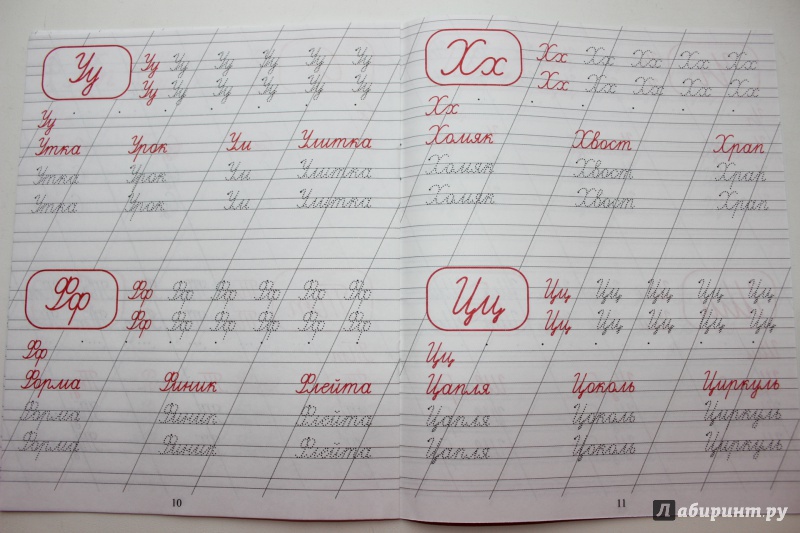 Уу Уу Уу Уу Уу Уу Уу
Уу Уу Уу Уу Уу Уу
Уу
Утка Урок Ум Улитка
Утка Урок Ум Улитка
Утка Урок Ум Улитка
Фф Фф Фф Фф Фф Фф Фф
Фф Фф Фф Фф Фф Фф
Фф
Форма Финик Флейта
Форма Финик Флейта
Форма Финик Флейта
10
Хх Хх Хх Хх Хх Хх
Хх Хх Хх Хх Хх
Хх
Хомяк Хвост Храп
Хомяк Хвост Храп
Хомяк Хвост Храп
Цц Цц Цц Цц Цц Цц
Цц Цц Цц Цц Цц
Цц
Цапля Цоколь Циркуль
Цапля Цоколь Циркуль
Цапля Цоколь Циркуль
11
Лабиринт.ру